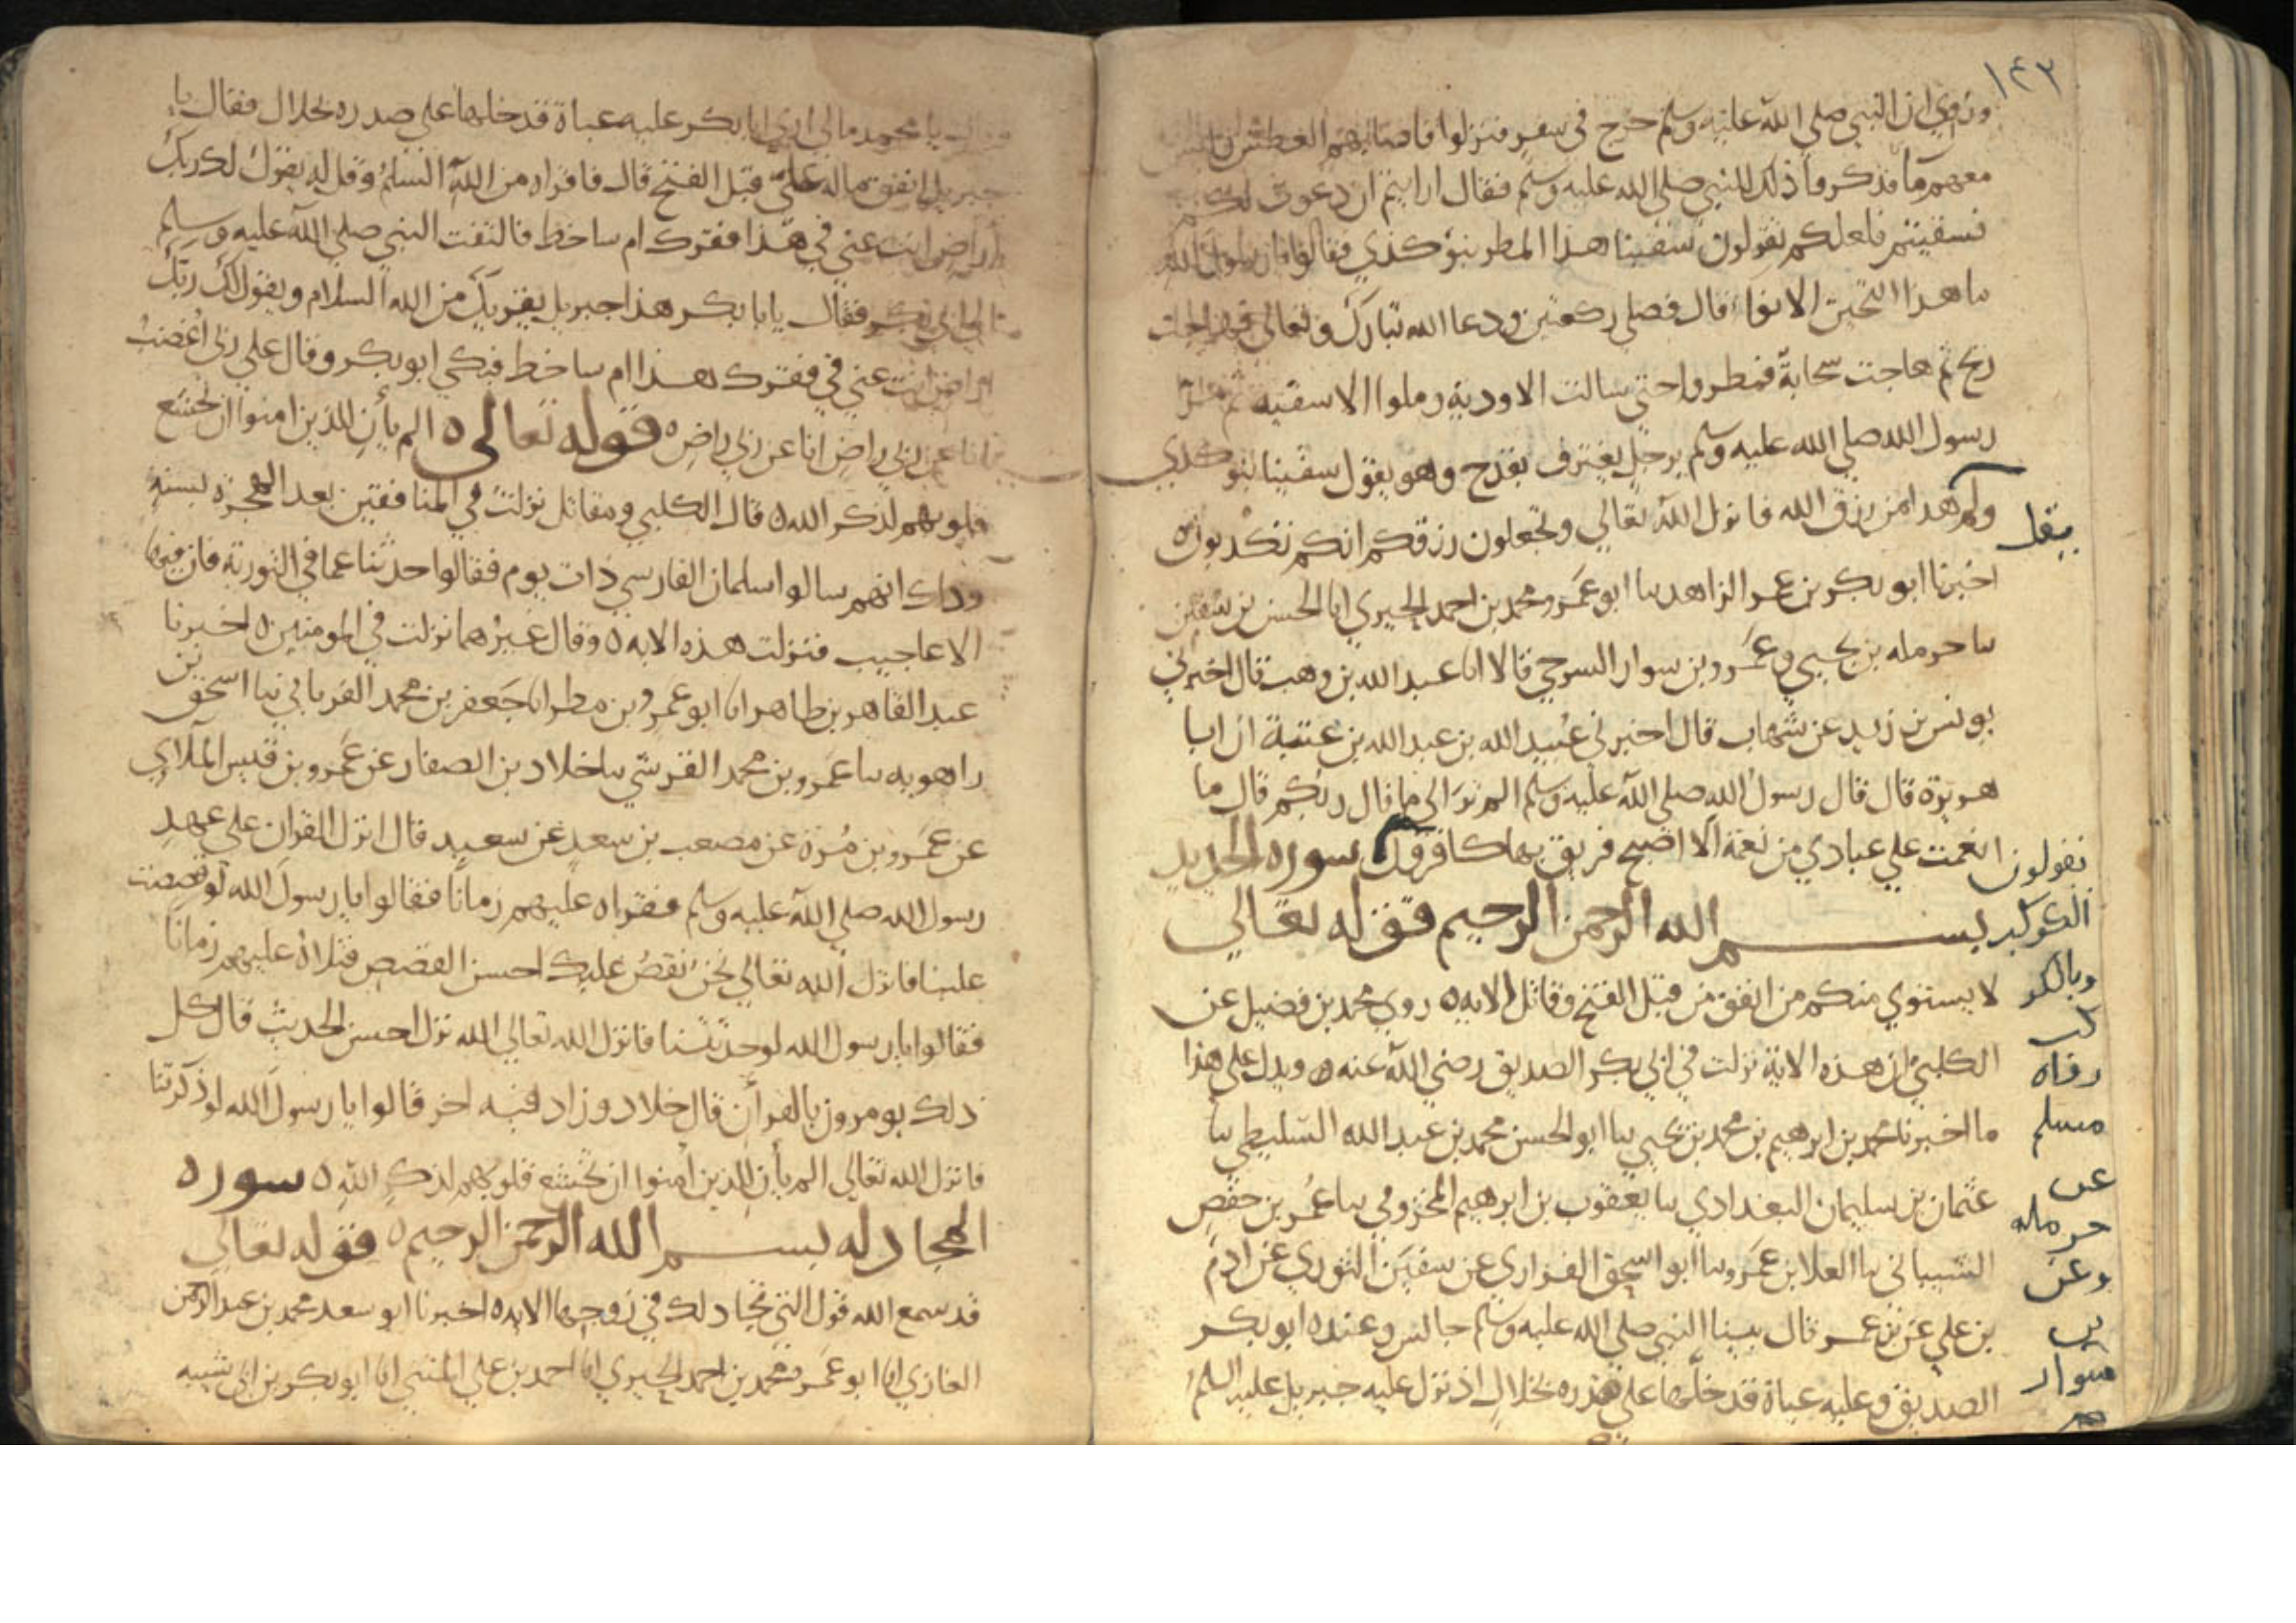 ١٤٣
وروي ان النبي صلى الله عليه وسلم خرج في سفر فنزلوا فاصابهم العطش وليس
معهم ما فذكروا ذلك للنبي صلى الله عليه وسلم فقال ارايتم ان دعوت لكم
فسقيتم فلعلكم تقولون سقينا هذا المطر بنو كذي فقالوا يا رسول الله
ما هذا الحين الانوا قال فصلى ركعتين ودعا الله تبارك وتعالى فهاجت
ريح ثم هاجت سحابة فمطروا حتى سالت الاودية وملوا الاسقيه ثم مر
رسول الله صلى الله عليه وسلم برجل يغترف بقدح وهو يقول سقينا بنو كذي
ولم هذا من رزق الله فانزل الله تعالى وتجعلون رزقكم انكم تكذبون ه
يقل
اخبرنا ابو بكر بن عمر الزاهد سا ابو عمرو محمد بن احمد الحيري انا الحسن بن سفين
سا حرمله بن يحيى وعمرو بن سوار السرحي قالا انا عبد الله بن وهب قال اخبرني
يونس بن زيد عن شهاب قال اخبرني عبيد الله بن عبد الله بن عتبة ان ابا
هريرة قال قال رسول الله صلى الله عليه وسلم الم تر الى ما قال ربكم قال ما
انعمت على عبادي من نعمة الا اصبح فريق بها كافرون سورة الحديد
بسم الله الرحمن الرحيم قوله تعالى
لا يستوي منكم من انفق من قبل الفتح وقاتل الايه ه روى محمد بن فضيل عن
الكلبي ان هذه الاية نزلت في ابي بكر الصديق رضي الله عنه ه ويدل على هذا
ما اخبرنا محمد بن ابرهيم بن محمد بن يحيى سا ابو الحسن محمد بن عبد الله السليطي سا
عثمان بن سليمان البغدادي سا يعقوب بن ابرهيم المخزومي سا عمر بن حفص
الشيباني سا العلا بن عمرو سا ابو اسحق الفزاري عن سفين الثوري عن ادم
بن علي عن بن عمر قال بينا النبي صلى الله عليه وسلم جالس وعنده ابو بكر
الصديق وعليه عباة قد خلها على صدره بخلال اذ نزل عليه جبريل عليه السلم
يقولون
الكوكب
وبالكو
كب
رواه
مسلم
عن
حرمله
وعن
بن
سوار
يا محمد ما لي ارى ابا بكر عليه عباة قد خلها على صدره بخلال فقال يا
جبريل انفق ماله علي قبل الفتح قال فاقراه من الله السلم وقل له يقول لك ربك
اراض انت عني في هذا فقرك ام ساخط فالتفت النبي صلى الله عليه وسلم
الى ابي بكر فقال يا با بكر هذا جبريل يقريك من الله السلام ويقول لك ربك
اراض انت عني في فقرك هذا ام ساخط فبكى ابو بكر وقال على ربي اغضب
انا عن ربي راض انا عن ربي راض ه قوله تعالى ه الم يأن للذين امنوا ان تخشع
قلوبهم لذكر الله ه قال الكلبي ومقاتل نزلت في المنافقين بعد الهجرة بسنة
وذلك انهم سالوا سلمان الفارسي ذات يوم فقالوا حدثنا عما في التورية فان فيها
الاعاجيب فنزلت هذه الايه ه وقال غيرهما نزلت في المومنين ه اخبرنا
عبد القاهر بن طاهر انا ابو عمرو بن مطر انا جعفر بن محمد الفريابي سا اسحق بن
راهويه سا عمرو بن محمد القرشي سا خلاد بن الصفار عن عمرو بن قيس الملاي
عن عمرو بن مرة عن مصعب بن سعد عن سعيد قال انزل القران على عهد
رسول الله صلى الله عليه وسلم فقراه عليهم زمانا فقالوا يا رسول الله لو قصصت
علينا فانزل الله تعالى نحن نقص عليك احسن القصص فتلاه عليهم زمانا
فقالوا يا رسول الله لو حدثتنا فانزل الله تعالى الله نزل احسن الحديث قال كل
ذلك يومرون بالقرآن قال خلاد وزاد فيه اخر قالوا يا رسول الله لو ذكرتنا
فانزل الله تعالى الم يأن للذين امنوا ان تخشع قلوبهم لذكر الله ه سورة
المجادله بسم الله الرحمن الرحيم ه قوله تعالى
قد سمع الله قول التي تجادلك في زوجها الايه ه اخبرنا ابو سعد محمد بن عبد الرحمن
الغازي انا ابو عمرو محمد بن احمد الحيري انا احمد بن علي المثني انا ابو بكر بن ابي شيبه